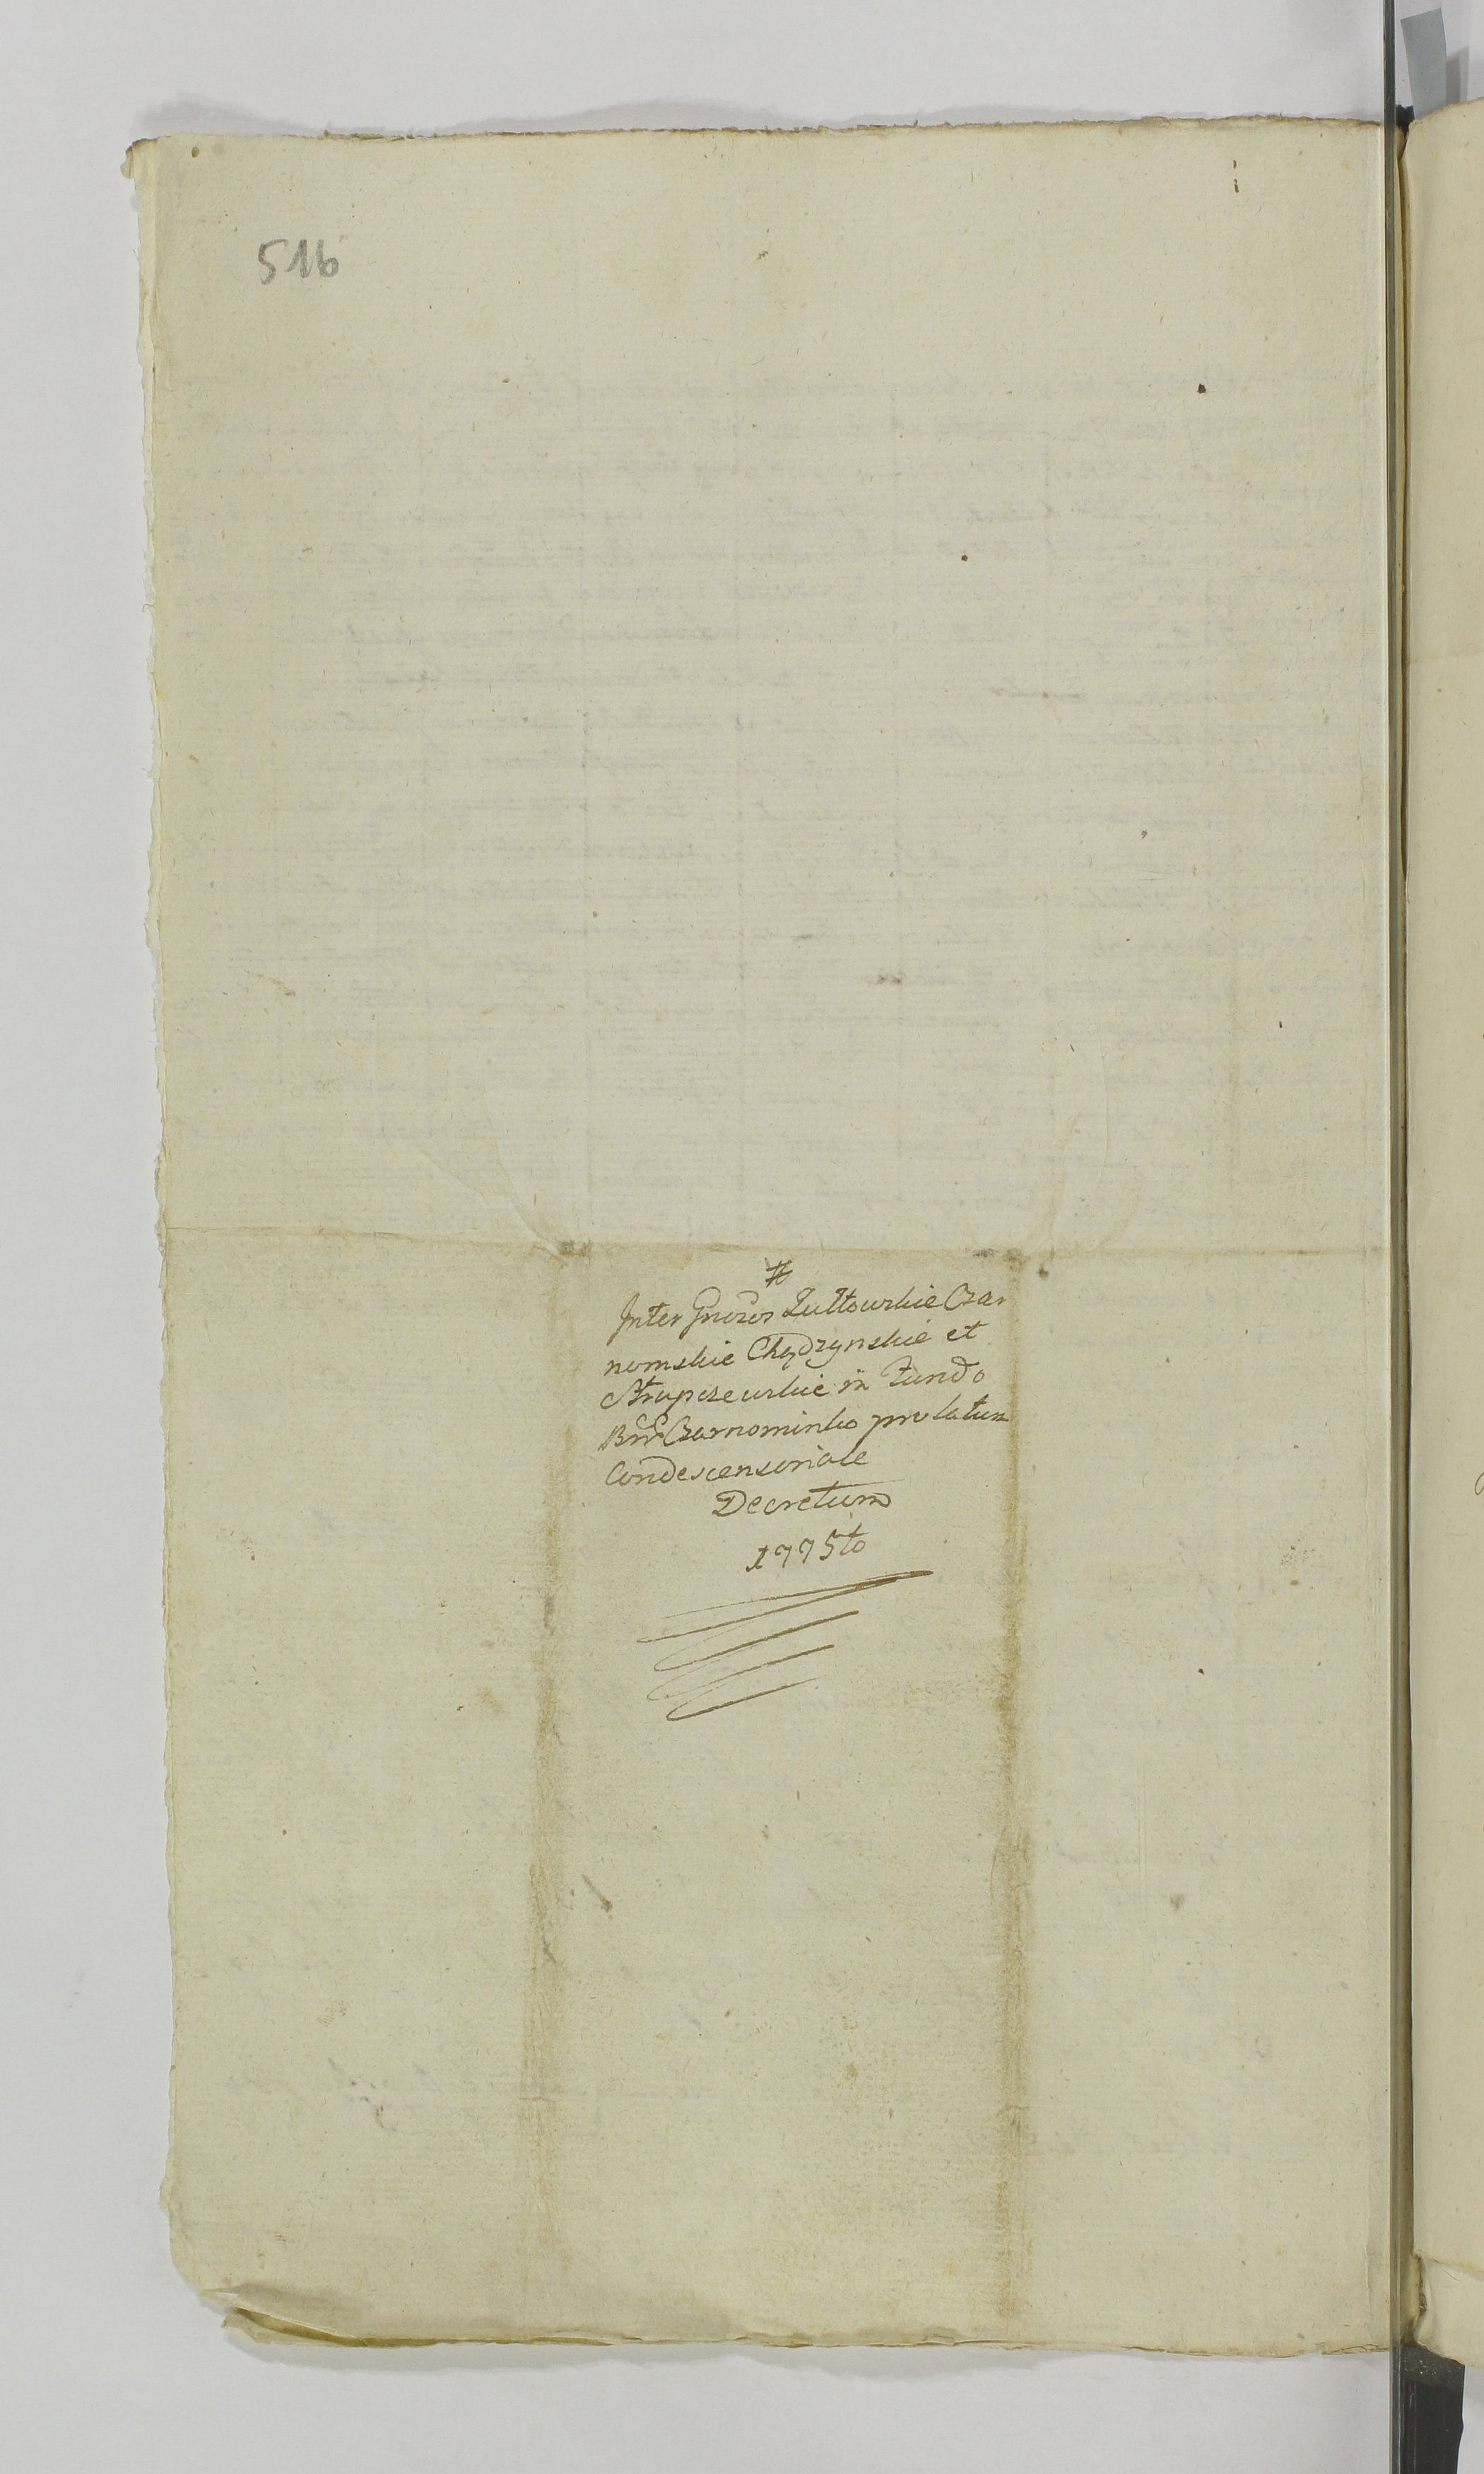 516
#
Inter Gnosos Zułtowskie Czar
nomskie Chądzynskie et
Strupczewskie in Fundo
Brr Czarnominko prolatum
Condescensoriale
Decretum
1775to